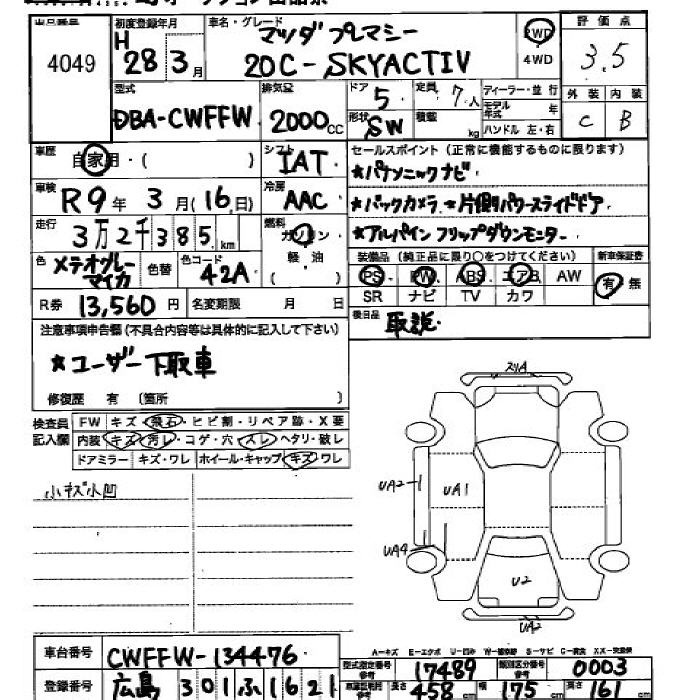 出品番号 初度登録年月 車名・グレード 評価点
4049 H 28 3月 マツダ プレマシー 20C-SKYACTIV 2WD 4WD 3.5
型式 排気量 ドア 5 定員 7人 ディーラー・並行 外装 内装
DBA-CWFFW 2000cc 形状 SW 積載 kg モデル年式 年 ハンドル 左・右 C B
車歴 自家用・( ) シフト IAT セールスポイント(正常に機能するものに限ります)
★パナソニックナビ・
車検 R9年 3月(16日) 冷房 AAC ★バックカメラ ★片側パワースライドドア・
走行 3万2千385km 燃料 ガソリン 軽・油 ( ) ★アルパイン フリップダウンモニター・
色 メテオグレーマイカ 色替 色コード 42A 装備品(純正品に限り○をつけてください) 新車保証書
PS PW ABS エアB AW 有・無
SR ナビ TV カワ
R券 13,560円 名変期限 月 日 後日品 取説・
注意事項申告欄(不具合内容等は具体的に記入して下さい)
★ユーザー下取車
修復歴 有 〔箇所 〕
検査員記入欄 FW キズ・飛石・ヒビ割・リペア跡・X要
内装 キズ・汚レ・コゲ・穴・スレ・ヘタリ・破レ
ドアミラー キズ・ワレ ホイール・キャップ キズ・ワレ
小キズ小凹
スリA
UA2-1 UA1
UA4
U2
UA2
A-キズ E-エクボ U-凹み W-補修跡 S-サビ C-腐食 XX-交換済
車台番号 CWFFW-134476 型式指定番号 参考 17489 類別区分番号 参考 0003
登録番号 広島 301 ふ 1621 長さ 458cm 幅 175cm 高さ 161cm